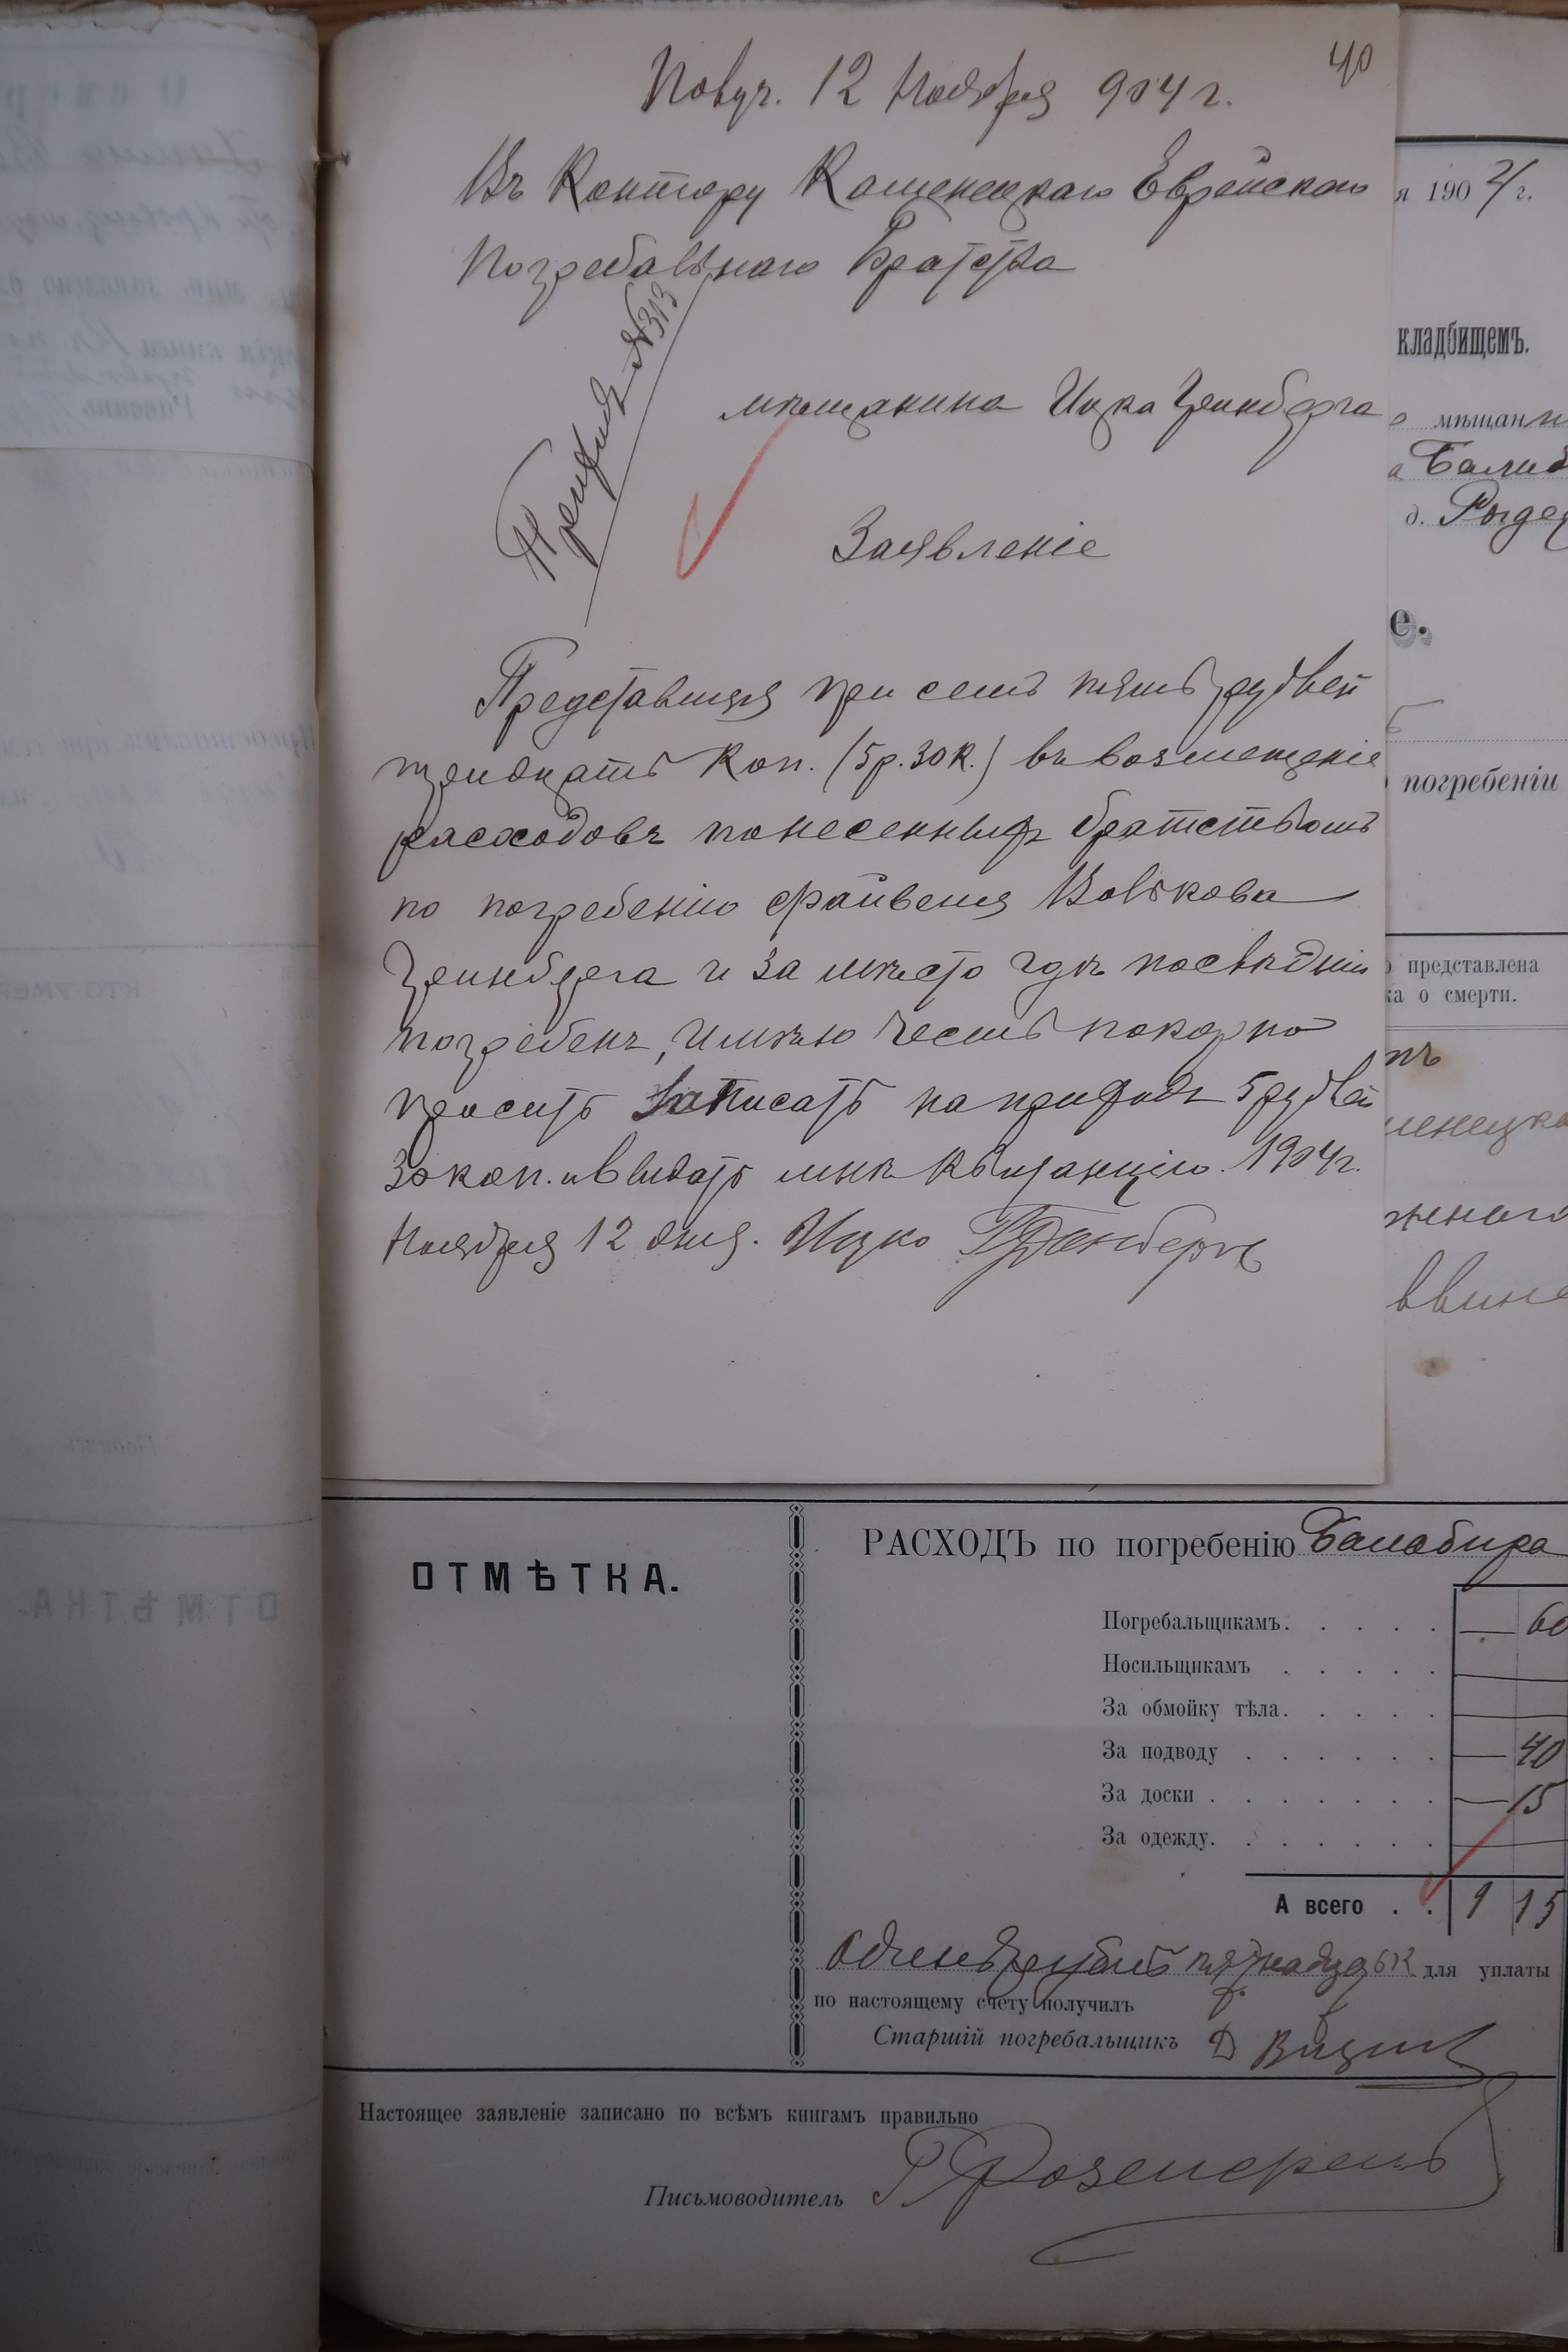 40
Получ. 12 Ноября 904 г.
Въ Контору Каменецкаго Еврейскаго
Погребальнаго Братства
Квитанція №313
мѣщанина Ицка Гринберга
Заявленіе
Представляя при семъ пять рублей
тридцать коп. (5 р. 30 к.) въ возмещеніе
расходовъ понесенныхъ братствомъ
по погребенію Файвеля Волькова
Гринберга и за мѣсто гдѣ послѣдній
погребенъ, имѣю честь покорно
просить записать на приходъ 5 рублей
30 коп. и выдать мнѣ квитанцію. 1904 г.
Ноября 12 дня. Ицко Гринбергъ
я 1904 г.
кладбищемъ.
мѣщани
д.
е.
погребеніи
представлена
ка о смерти.
ОТМѢТКА.
РАСХОДЪ по погребенію
Погребальщикамъ. — 60
Носильщикамъ
За обмойку тѣла.
За подводу — 40
За доски — 15
За одежду.
А всего 1 15
Одинъ рубль пятнадцать к для уплаты
по настоящему счету получилъ
Старшій погребальщикъ Д
Настоящее заявленіе записано по всѣмъ книгамъ правильно
Письмоводитель